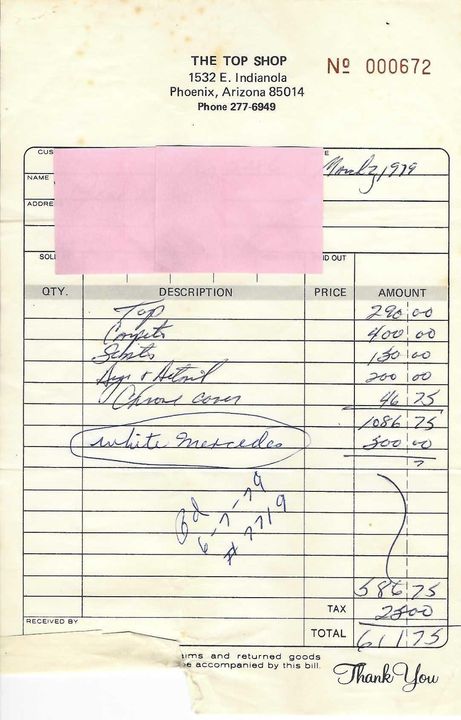 THE TOP SHOP
1532 E. Indianola
Phoenix, Arizona 85014
Phone 277-6949
Nº 000672
CUS
E
March 2, 1979
NAME
ADDRE
SOL
D OUT
QTY. DESCRIPTION PRICE AMOUNT
Top 290 00
Carpets 400 00
150 00
200 00
Chrome cover 46 75
1086 75
White Mercedes 500 00
Pd
6-7-79
# 7719
586 75
TAX 2500
RECEIVED BY
TOTAL 611 75
ims and returned goods
be accompanied by this bill.
Thank You